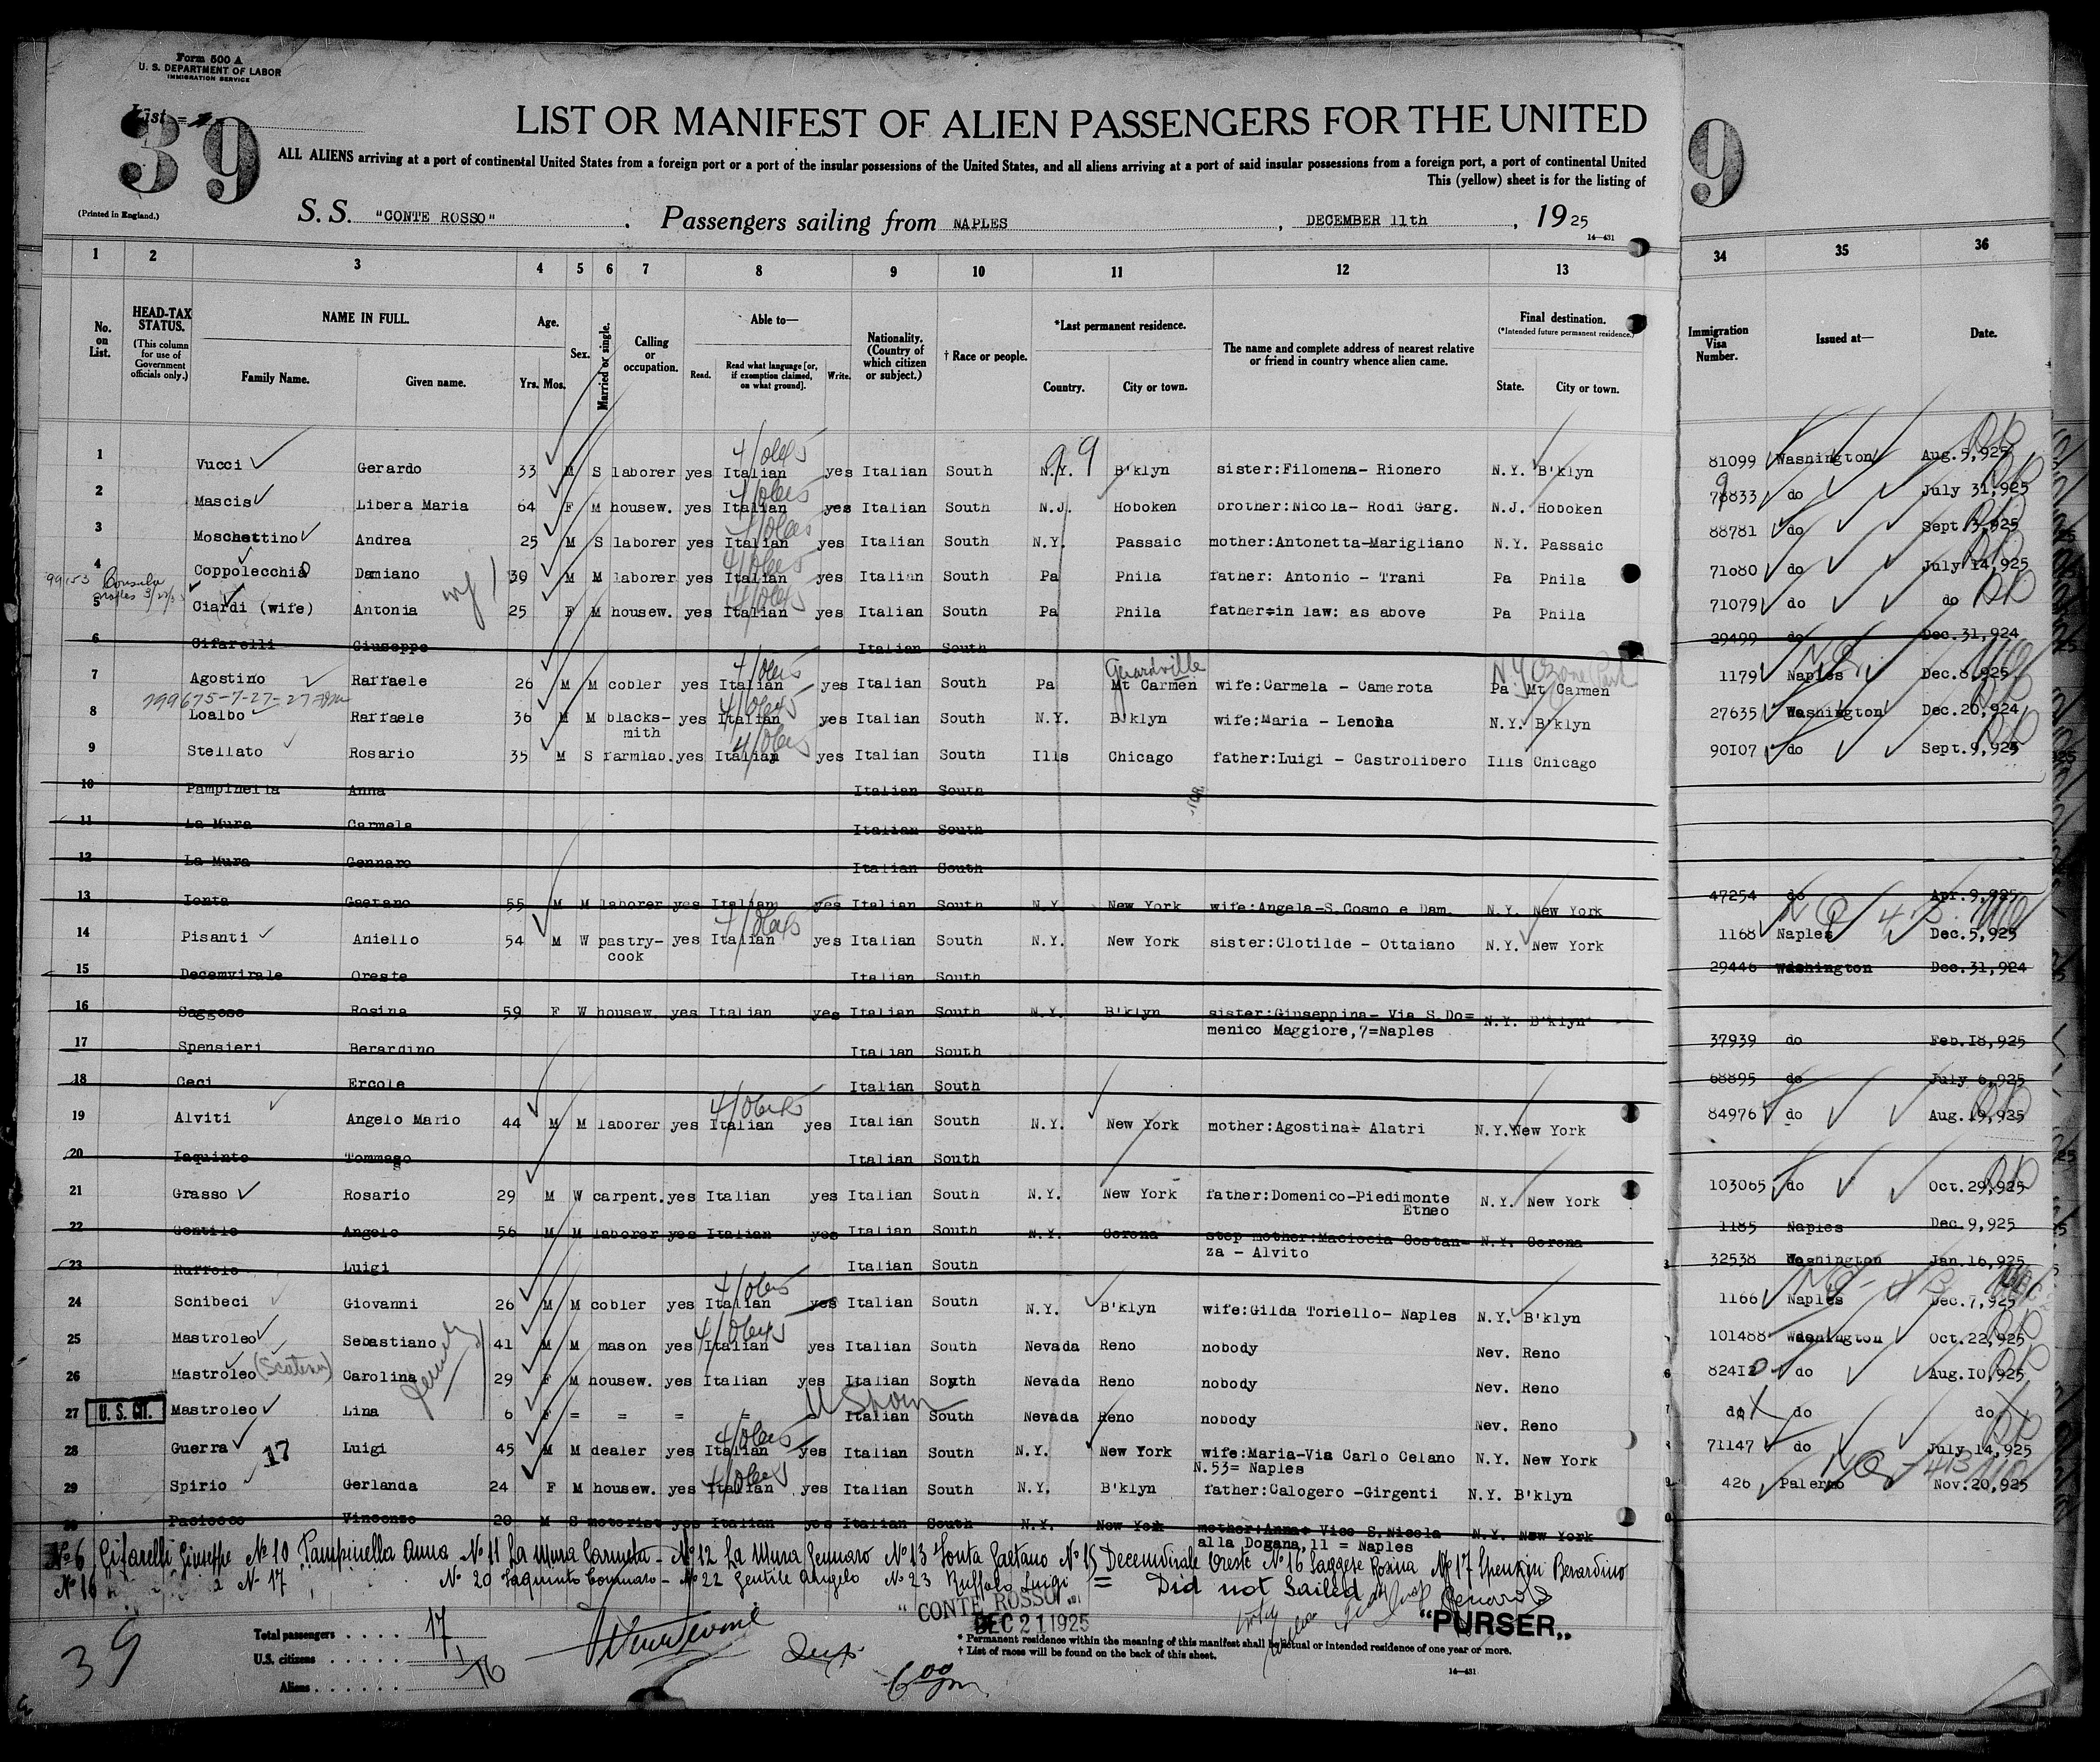 Form 500 A
U. S. DEPARTMENT OF LABOR
IMMIGRATION SERVICE
List
39
9
LIST OR MANIFEST OF ALIEN PASSENGERS FOR THE UNITED
ALL ALIENS arriving at a port of continental United States from a foreign port or a port of the insular possessions of the United States, and all aliens arriving at a port of said insular possessions from a foreign port, a port of continental United
This (yellow) sheet is for the listing of
(Printed in England.)
S. S. "CONTE ROSSO". Passengers sailing from NAPLES, DECEMBER 11th, 1925
14—431
1 2 3 4 5 6 7 8 9 10 11 12 13 34 35 36
No. on List.
HEAD-TAX STATUS.
(This column for use of Government officials only.)
NAME IN FULL.
Family Name. Given name.
Age.
Yrs. Mos.
Sex.
Married or single.
Calling or occupation.
Able to—
Read. Read what language [or, if exemption claimed, on what ground]. Write.
Nationality. (Country of which citizen or subject.)
† Race or people.
*Last permanent residence.
Country. City or town.
The name and complete address of nearest relative or friend in country whence alien came.
Final destination.
(*Intended future permanent residence.)
State. City or town.
Immigration Visa Number.
Issued at—
Date.
1 Vucci Gerardo 33 M S laborer yes Italian yes Italian South N.Y. B'klyn sister:Filomena- Rionero N.Y. B'klyn 81099 Washington Aug.5,925
2 Mascis Libera Maria 64 F M housew. yes Italian yes Italian South N.J. Hoboken brother:Nicola- Rodi Garg. N.J. Hoboken 78833 do July 31,925
3 Moschettino Andrea 25 M S laborer yes Italian yes Italian South N.Y. Passaic mother:Antonetta-Marigliano N.Y. Passaic 88781 do Sept 3,925
4 Coppolecchia Damiano 39 M M laborer yes Italian yes Italian South Pa Phila father: Antonio - Trani Pa Phila 71080 do July 14,925
5 Ciardi (wife) Antonia 25 F M housew. yes Italian yes Italian South Pa Phila father=in law: as above Pa Phila 71079 do do
6 Cifarelli Giuseppe Italian South 29499 do Dec.31,924
7 Agostino Raffaele 26 M M cobler yes Italian yes Italian South Pa Mt Carmen wife:Carmela - Camerota Pa Mt Carmen 1179 Naples Dec.8,925
Girardville
N.Y Ozone Park
8 Loalbo Raffaele 36 M M blacks- yes Italian yes Italian South N.Y. B'klyn wife:Maria - Lenola N.Y. B'klyn 27635 Washington Dec.20,924
mith
9 Stellato Rosario 35 M S farmlab. yes Italian yes Italian South Ills Chicago father:Luigi - Castrolibero Ills Chicago 90107 do Sept.9,925
10 Pampinella Anna Italian South
11 La Mura Carmela Italian South
12 La Mura Gennaro Italian South
13 Ionta Gaetano 55 M M laborer yes Italian yes Italian South N.Y. New York wife:Angela-S.Cosmo e Dam. N.Y. New York 47254 do Apr.9,925
14 Pisanti Aniello 54 M W pastry- yes Italian yes Italian South N.Y. New York sister:Clotilde - Ottaiano N.Y. New York 1168 Naples Dec.5,925
cook
15 Decemvirale Oreste Italian South 29446 Washington Dec.31,924
16 Saggese Rosina 59 F W housew. yes Italian yes Italian South N.Y. B'klyn sister:Giuseppina- Via S.Do= N.Y. B'klyn
menico Maggiore,7=Naples
17 Spensieri Berardino Italian South 37939 do Feb.18,925
18 Ceci Ercole Italian South 68895 do July 6,925
19 Alviti Angelo Mario 44 M M laborer yes Italian yes Italian South N.Y. New York mother:Agostina= Alatri N.Y. New York 84976 do Aug.19,925
20 Iaquinto Tommaso Italian South
21 Grasso Rosario 29 M W carpent. yes Italian yes Italian South N.Y. New York father:Domenico-Piedimonte N.Y. New York 103065 do Oct.29,925
Etneo
22 Gentile Angelo 56 M M laborer yes Italian yes Italian South N.Y. Corona step mother:Maciocia Costan- N.Y. Corona 1185 Naples Dec.9,925
za - Alvito
23 Ruffolo Luigi Italian South 32538 Washington Jan.16,925
24 Schibeci Giovanni 26 M M cobler yes Italian yes Italian South N.Y. B'klyn wife:Gilda Toriello- Naples N.Y. B'klyn 1166 Naples Dec.7,925
25 Mastroleo Sebastiano 41 M M mason yes Italian yes Italian South Nevada Reno nobody Nev. Reno 101488 Washington Oct.22,925
26 Mastroleo Carolina 29 F M housew. yes Italian yes Italian South Nevada Reno nobody Nev. Reno 82412 do Aug.10,925
27 U. S. CIT. Mastroleo Lina 6 F = = = = Italian South Nevada Reno nobody Nev. Reno do do do
28 Guerra Luigi 45 M M dealer yes Italian yes Italian South N.Y. New York wife:Maria-Via Carlo Celano N.Y. New York 71147 do July 14,925
17
N.53= Naples
29 Spirio Gerlanda 24 F M housew. yes Italian yes Italian South N.Y. B'klyn father:Calogero -Girgenti N.Y. B'klyn 426 Palermo Nov.20,925
30 Paciocco Vincenzo 20 M S motorist yes Italian yes Italian South N.Y. New York mother:Anna= Vico S.Nicola N.Y. New York
alla Dogana,11 = Naples
No 6 Cifarelli Giuseppe No 10 Pampinella Anna - No 11 La Mura Carmela - No 12 La Mura Gennaro No 13 Ionta Gaetano No 15 Decemvirale Oreste No 16 Saggese Rosina No 17 Spensieri Berardino
No 20 Iaquinto Tommaso - No 22 Gentile Angelo No 23 Ruffolo Luigi = Did not Sailed
"CONTE ROSSO"
DEC 21 1925
"PURSER"
Total passengers . . . . 17
U.S. citizens . . . . . . 1
Aliens . . . . . . 16
39
6 00 pm
* Permanent residence within the meaning of this manifest shall be actual or intended residence of one year or more.
† List of races will be found on the back of this sheet.
14—431